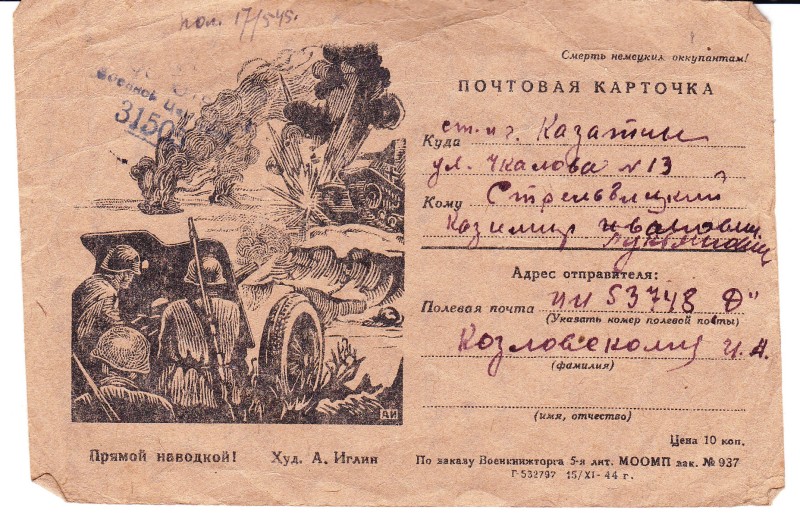 пол. 17/5 45.
31508
Смерть немецких оккупантам!
ПОЧТОВАЯ КАРТОЧКА
Куда ст. и г. Казатин
ул. Чкалова N 13
Кому
Казимир Ивановичу
Адрес отправителя:
Полевая почта 53748 Ф"
(Указать номер полевой почты)
Козловского И. А.
(фамилия)
(имя, отчество)
АИ
Цена 10 коп.
Прямой наводкой! Худ. А. Иглин
По заказу Военкнижторга 5-я лит. МООМП зак. № 937
Г-532797 15/XI-44 г.